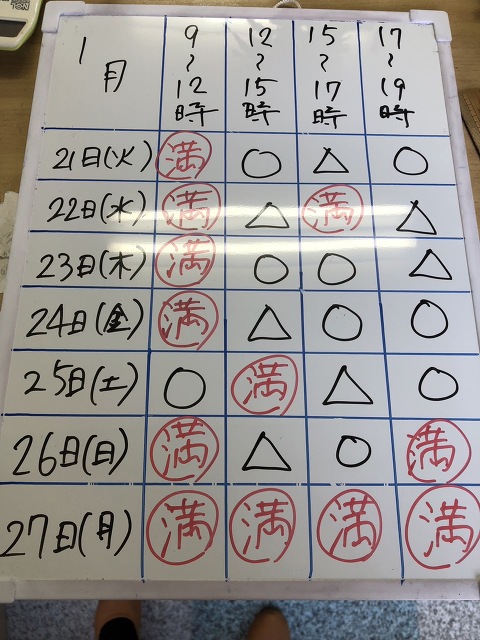 1月 9~12時 12~15時 15~17時 17~19時
21日(火) 満 ○ △ ○
22日(水) 満 △ 満 △
23日(木) 満 ○ ○ △
24日(金) 満 △ ○ ○
25日(土) ○ 満 △ ○
26日(日) 満 △ ○ 満
27日(月) 満 満 満 満